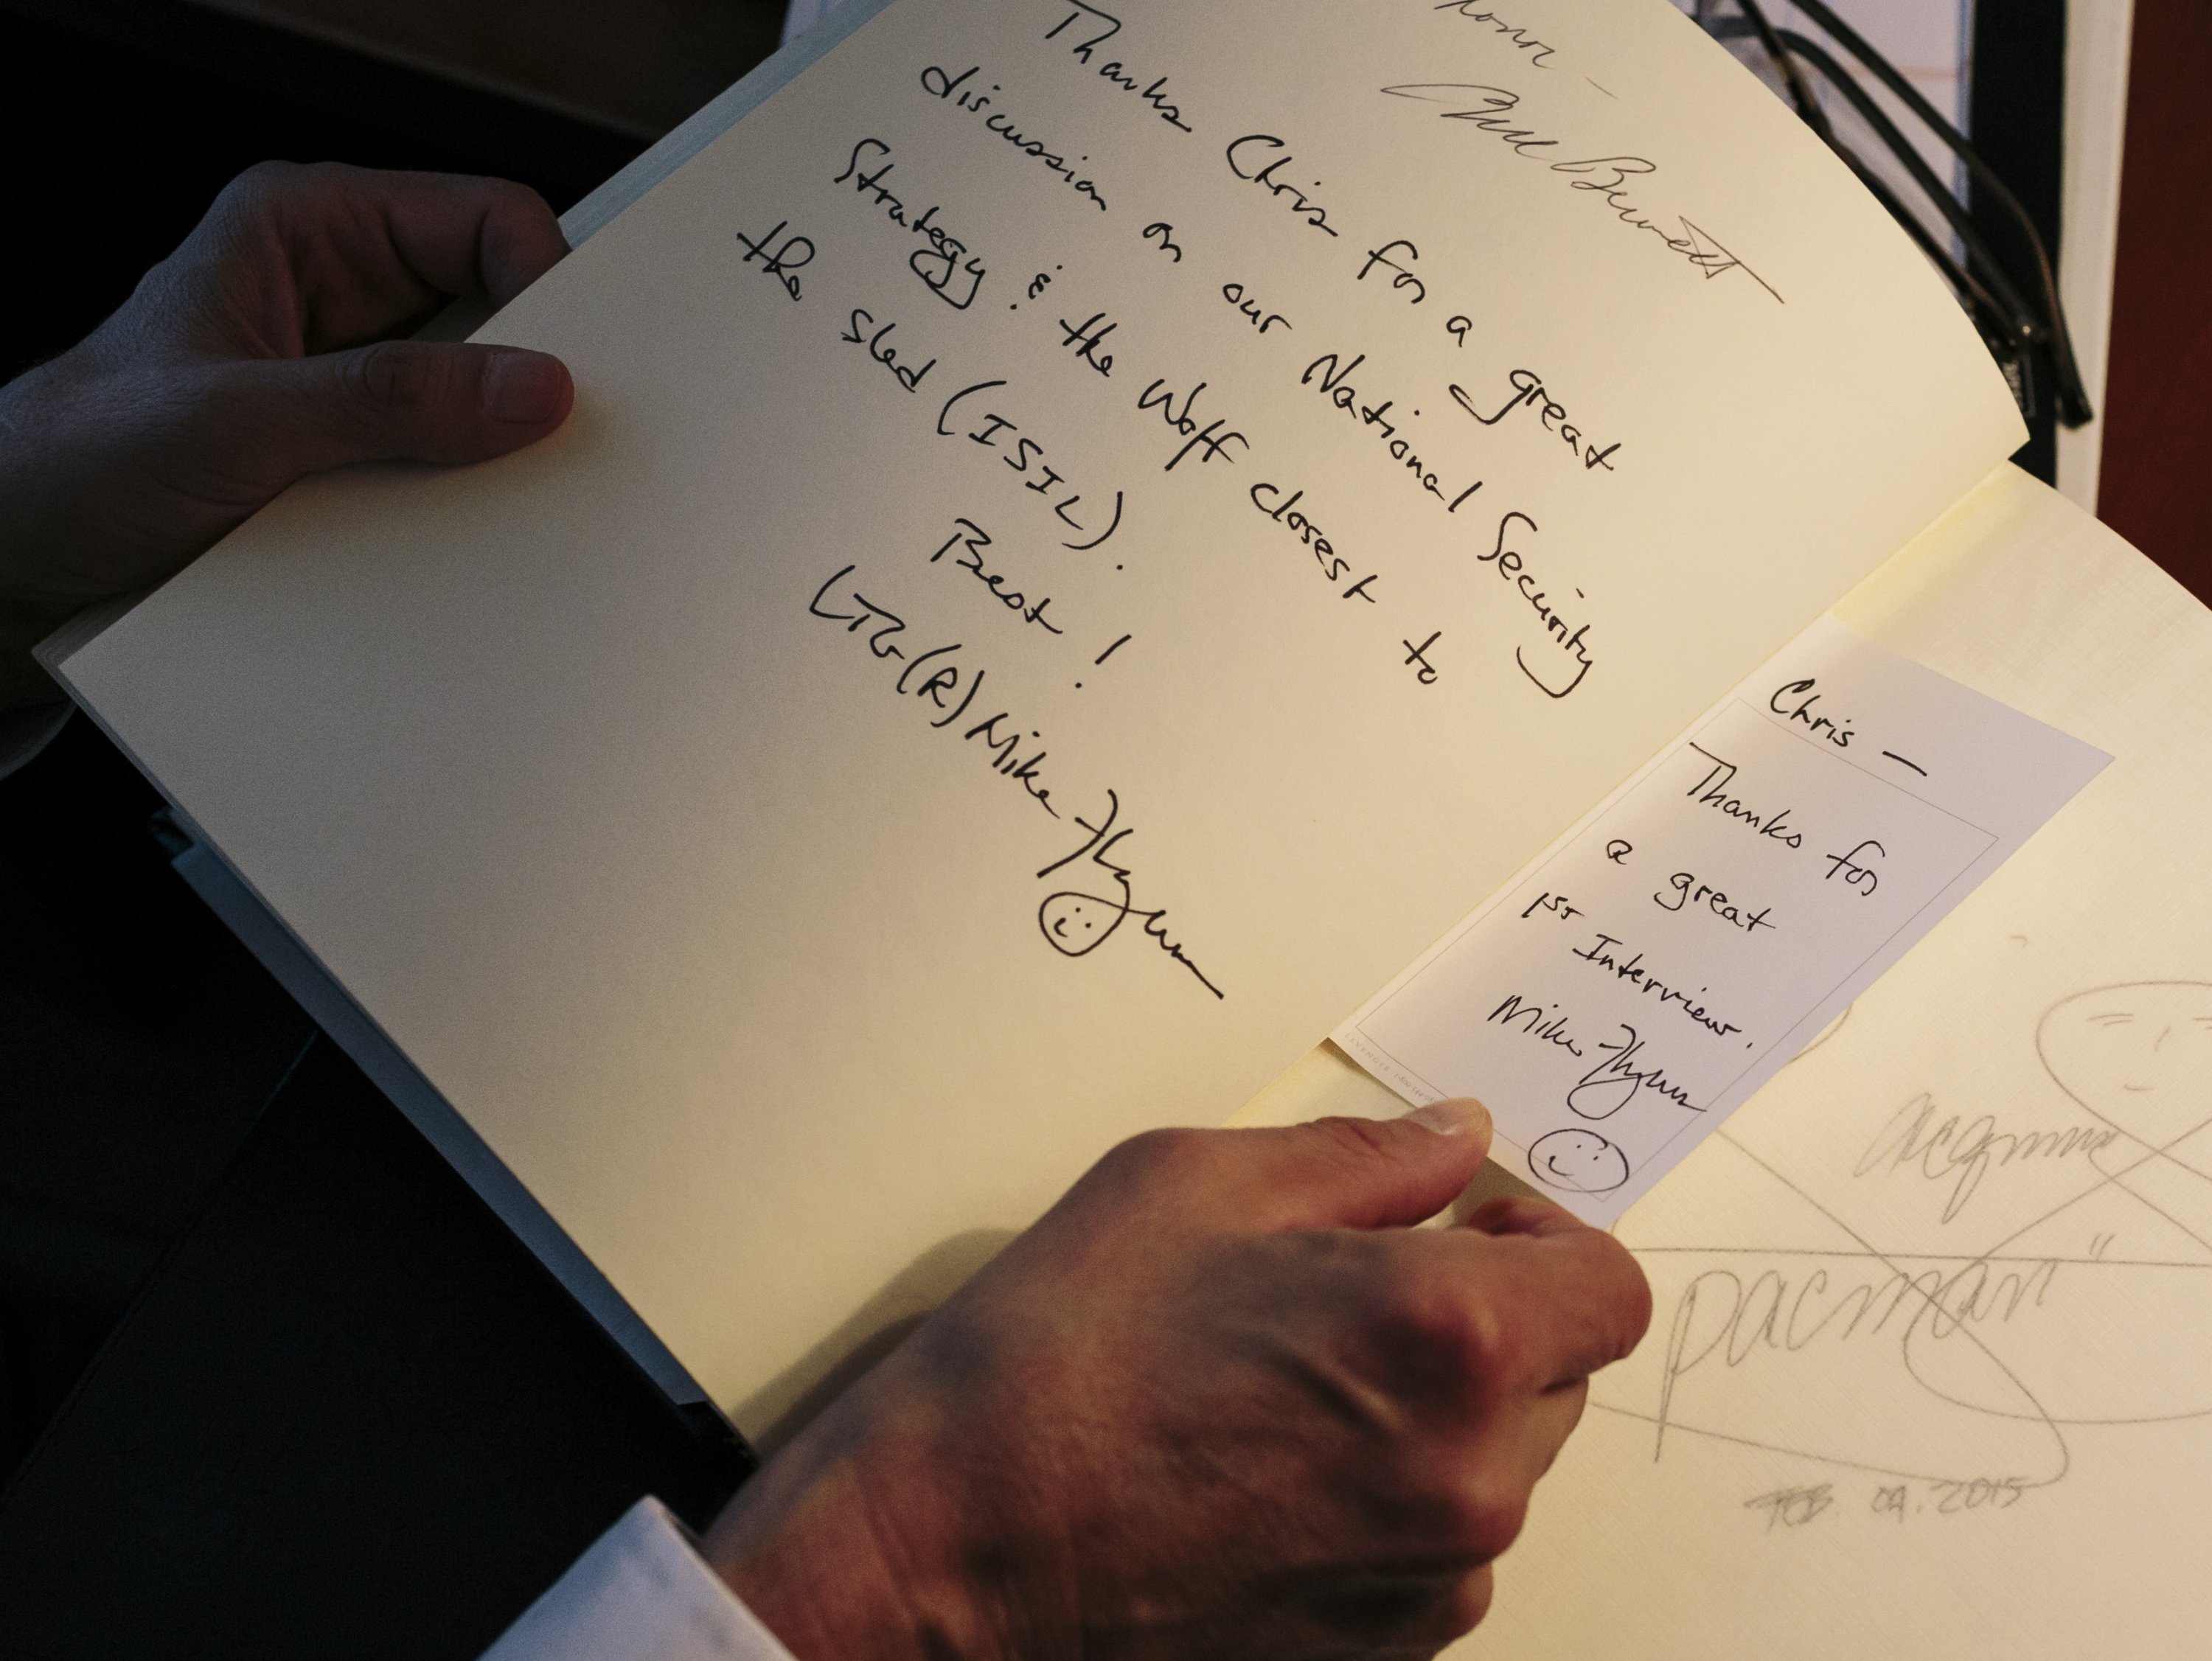 Honor —
Thanks Chris for a great
discussion on our National Security
Strategy & the Wolf closest to
the sled (ISIL).
Best!
LTG(R) Mike Flynn
Chris —
Thanks for
a great
1st Interview.
Mike Flynn
pacman"
FEB. 09. 2015